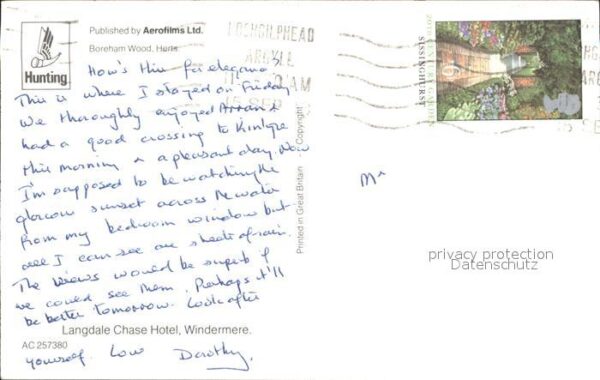 Published by Aerofilms Ltd.
Boreham Wood, Herts
Hunting
How's this for elegance!
This is where I stayed on Friday
We thoroughly enjoyed Arran &
had a good crossing to Kintyre
this morning & a pleasant day. Now
I'm supposed to be watching the
glorious sunset across the water
from my bedroom window but
all I can see are sheets of rain.
The views would be superb if
we could see them. Perhaps it'll
be better tomorrow. Look after
Langdale Chase Hotel, Windermere.
AC 257380
yourself. Love Dorothy.
Printed in Great Britain
Copyright
LOCHGILPHEAD
ARGYLL
AM
SEP
SISSINGHURST
Mr
privacy protection
Datenschutz